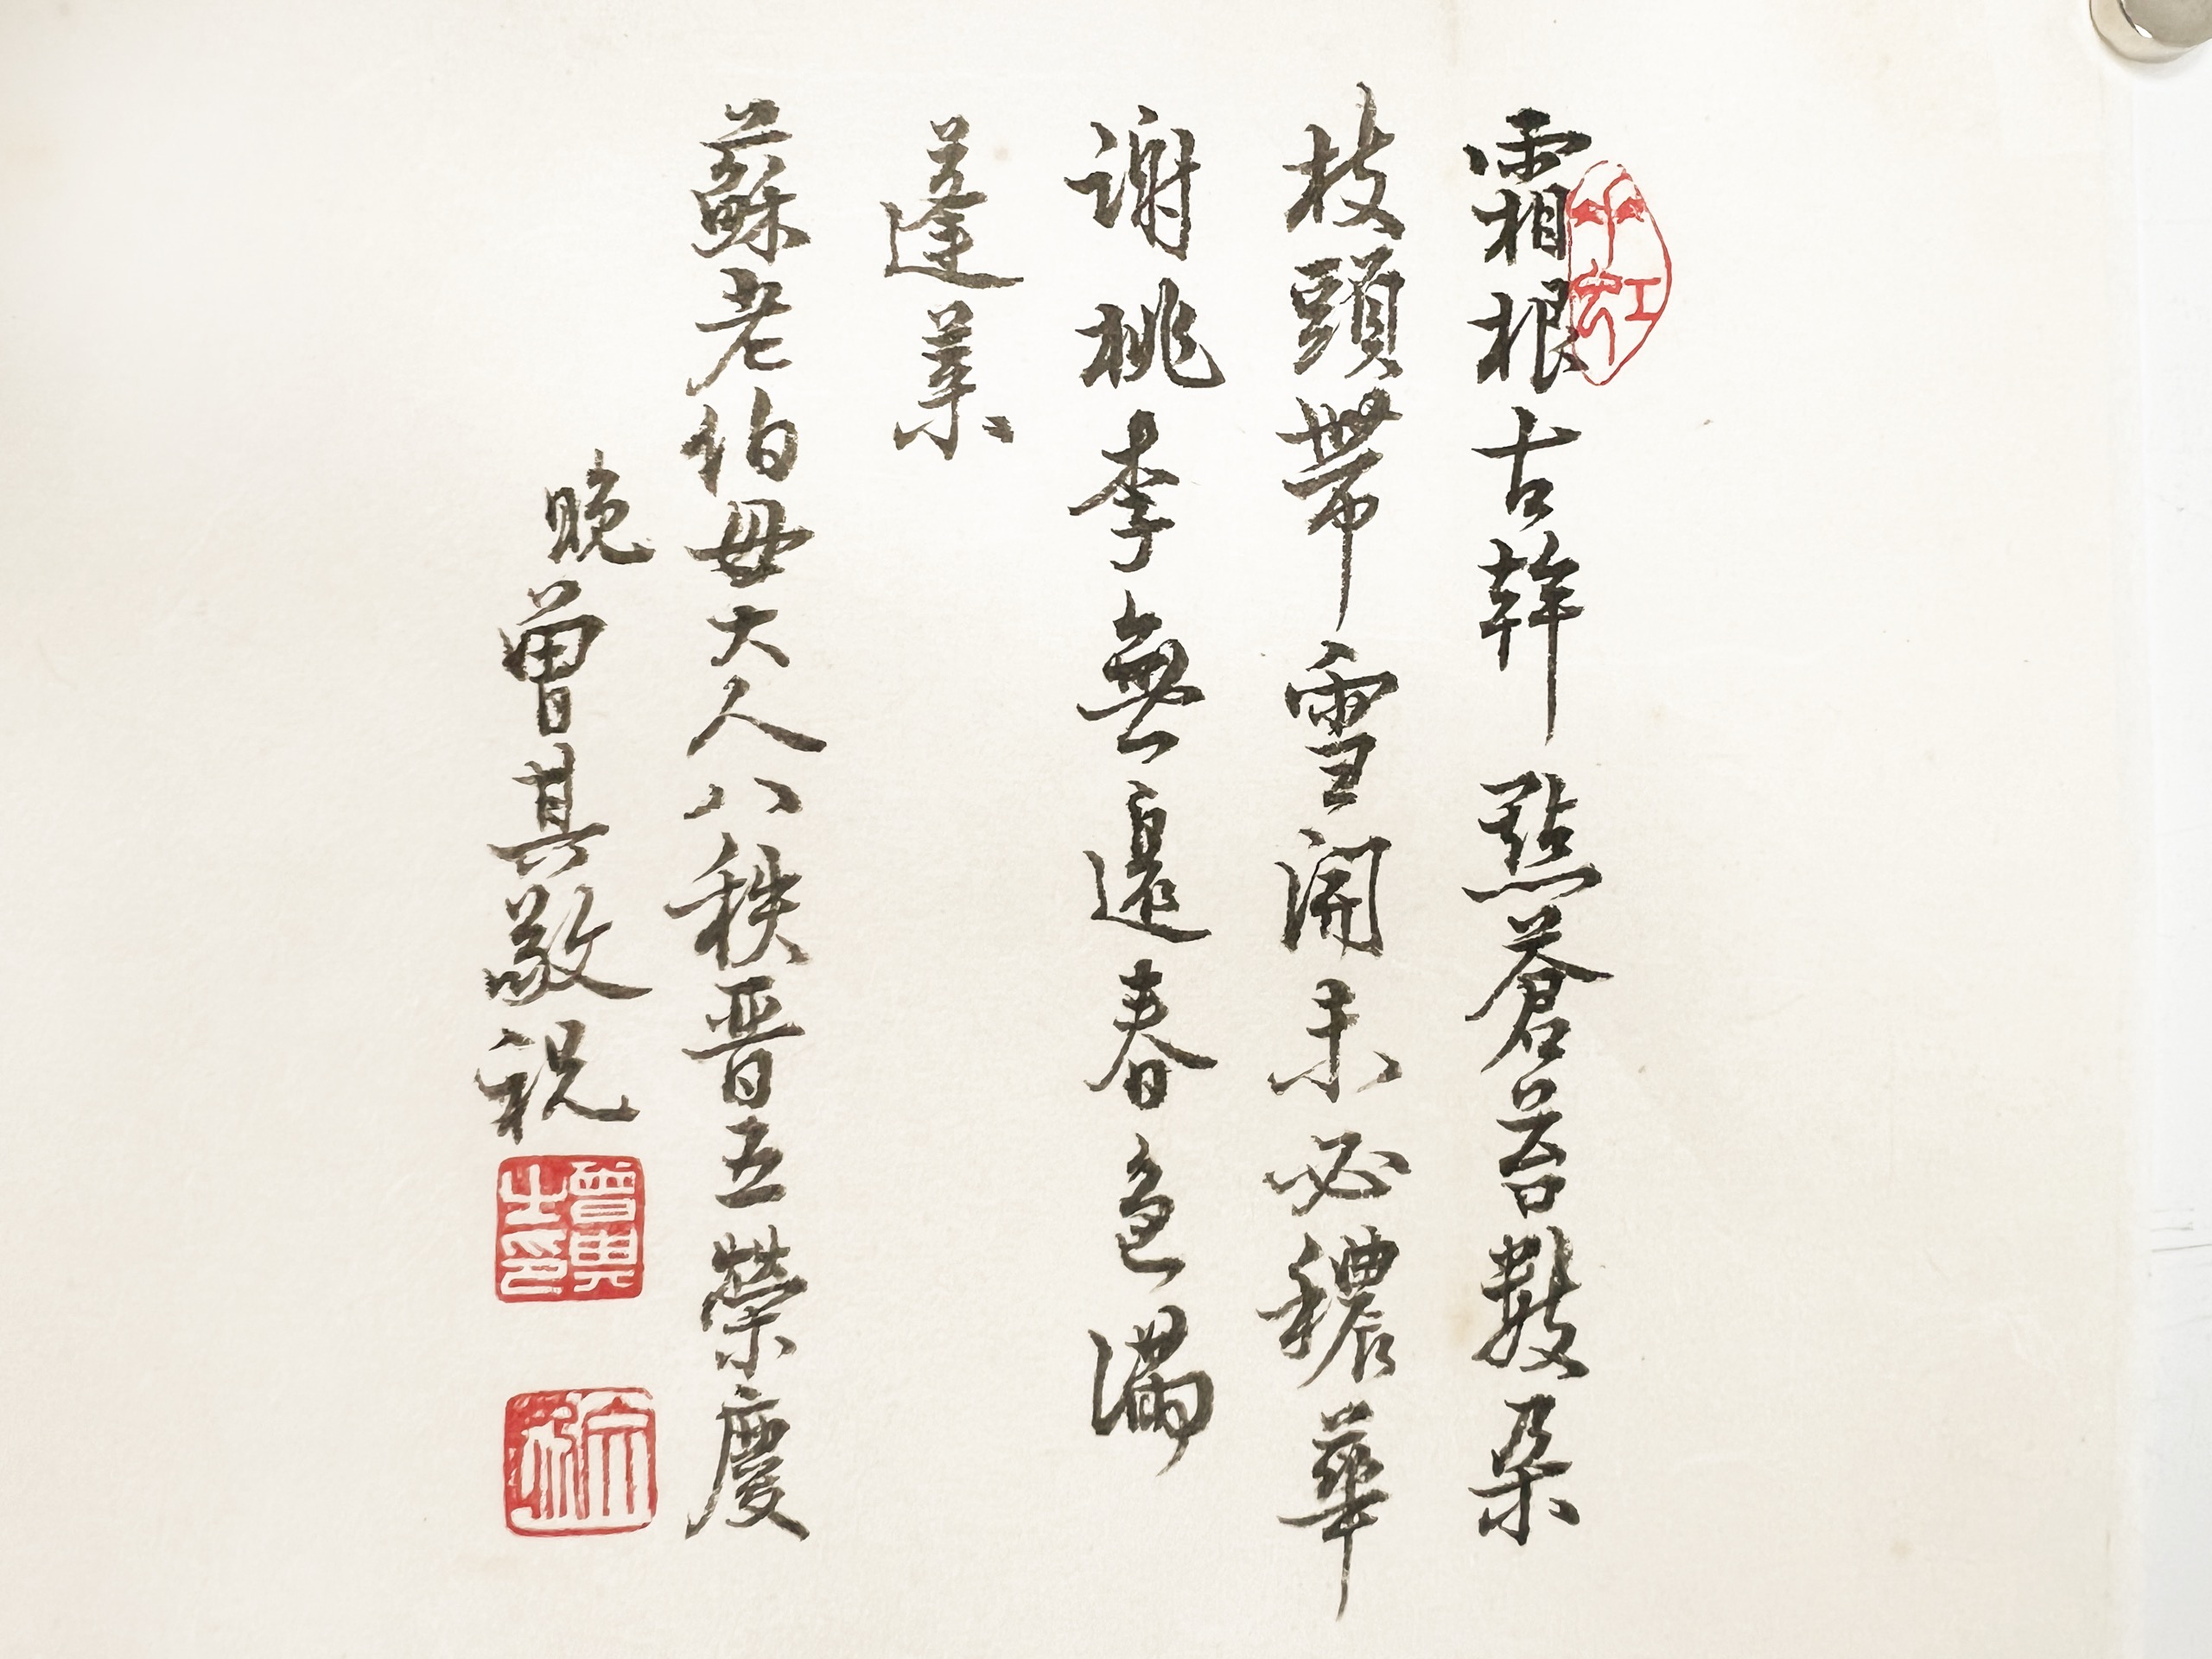 霜根古幹點蒼苔數朵
枝頭帶雪開未必穠華
謝桃李無邊春色滿
蓬萊
蘇老伯母大人八秩晉五榮慶
晚曾其敬祝